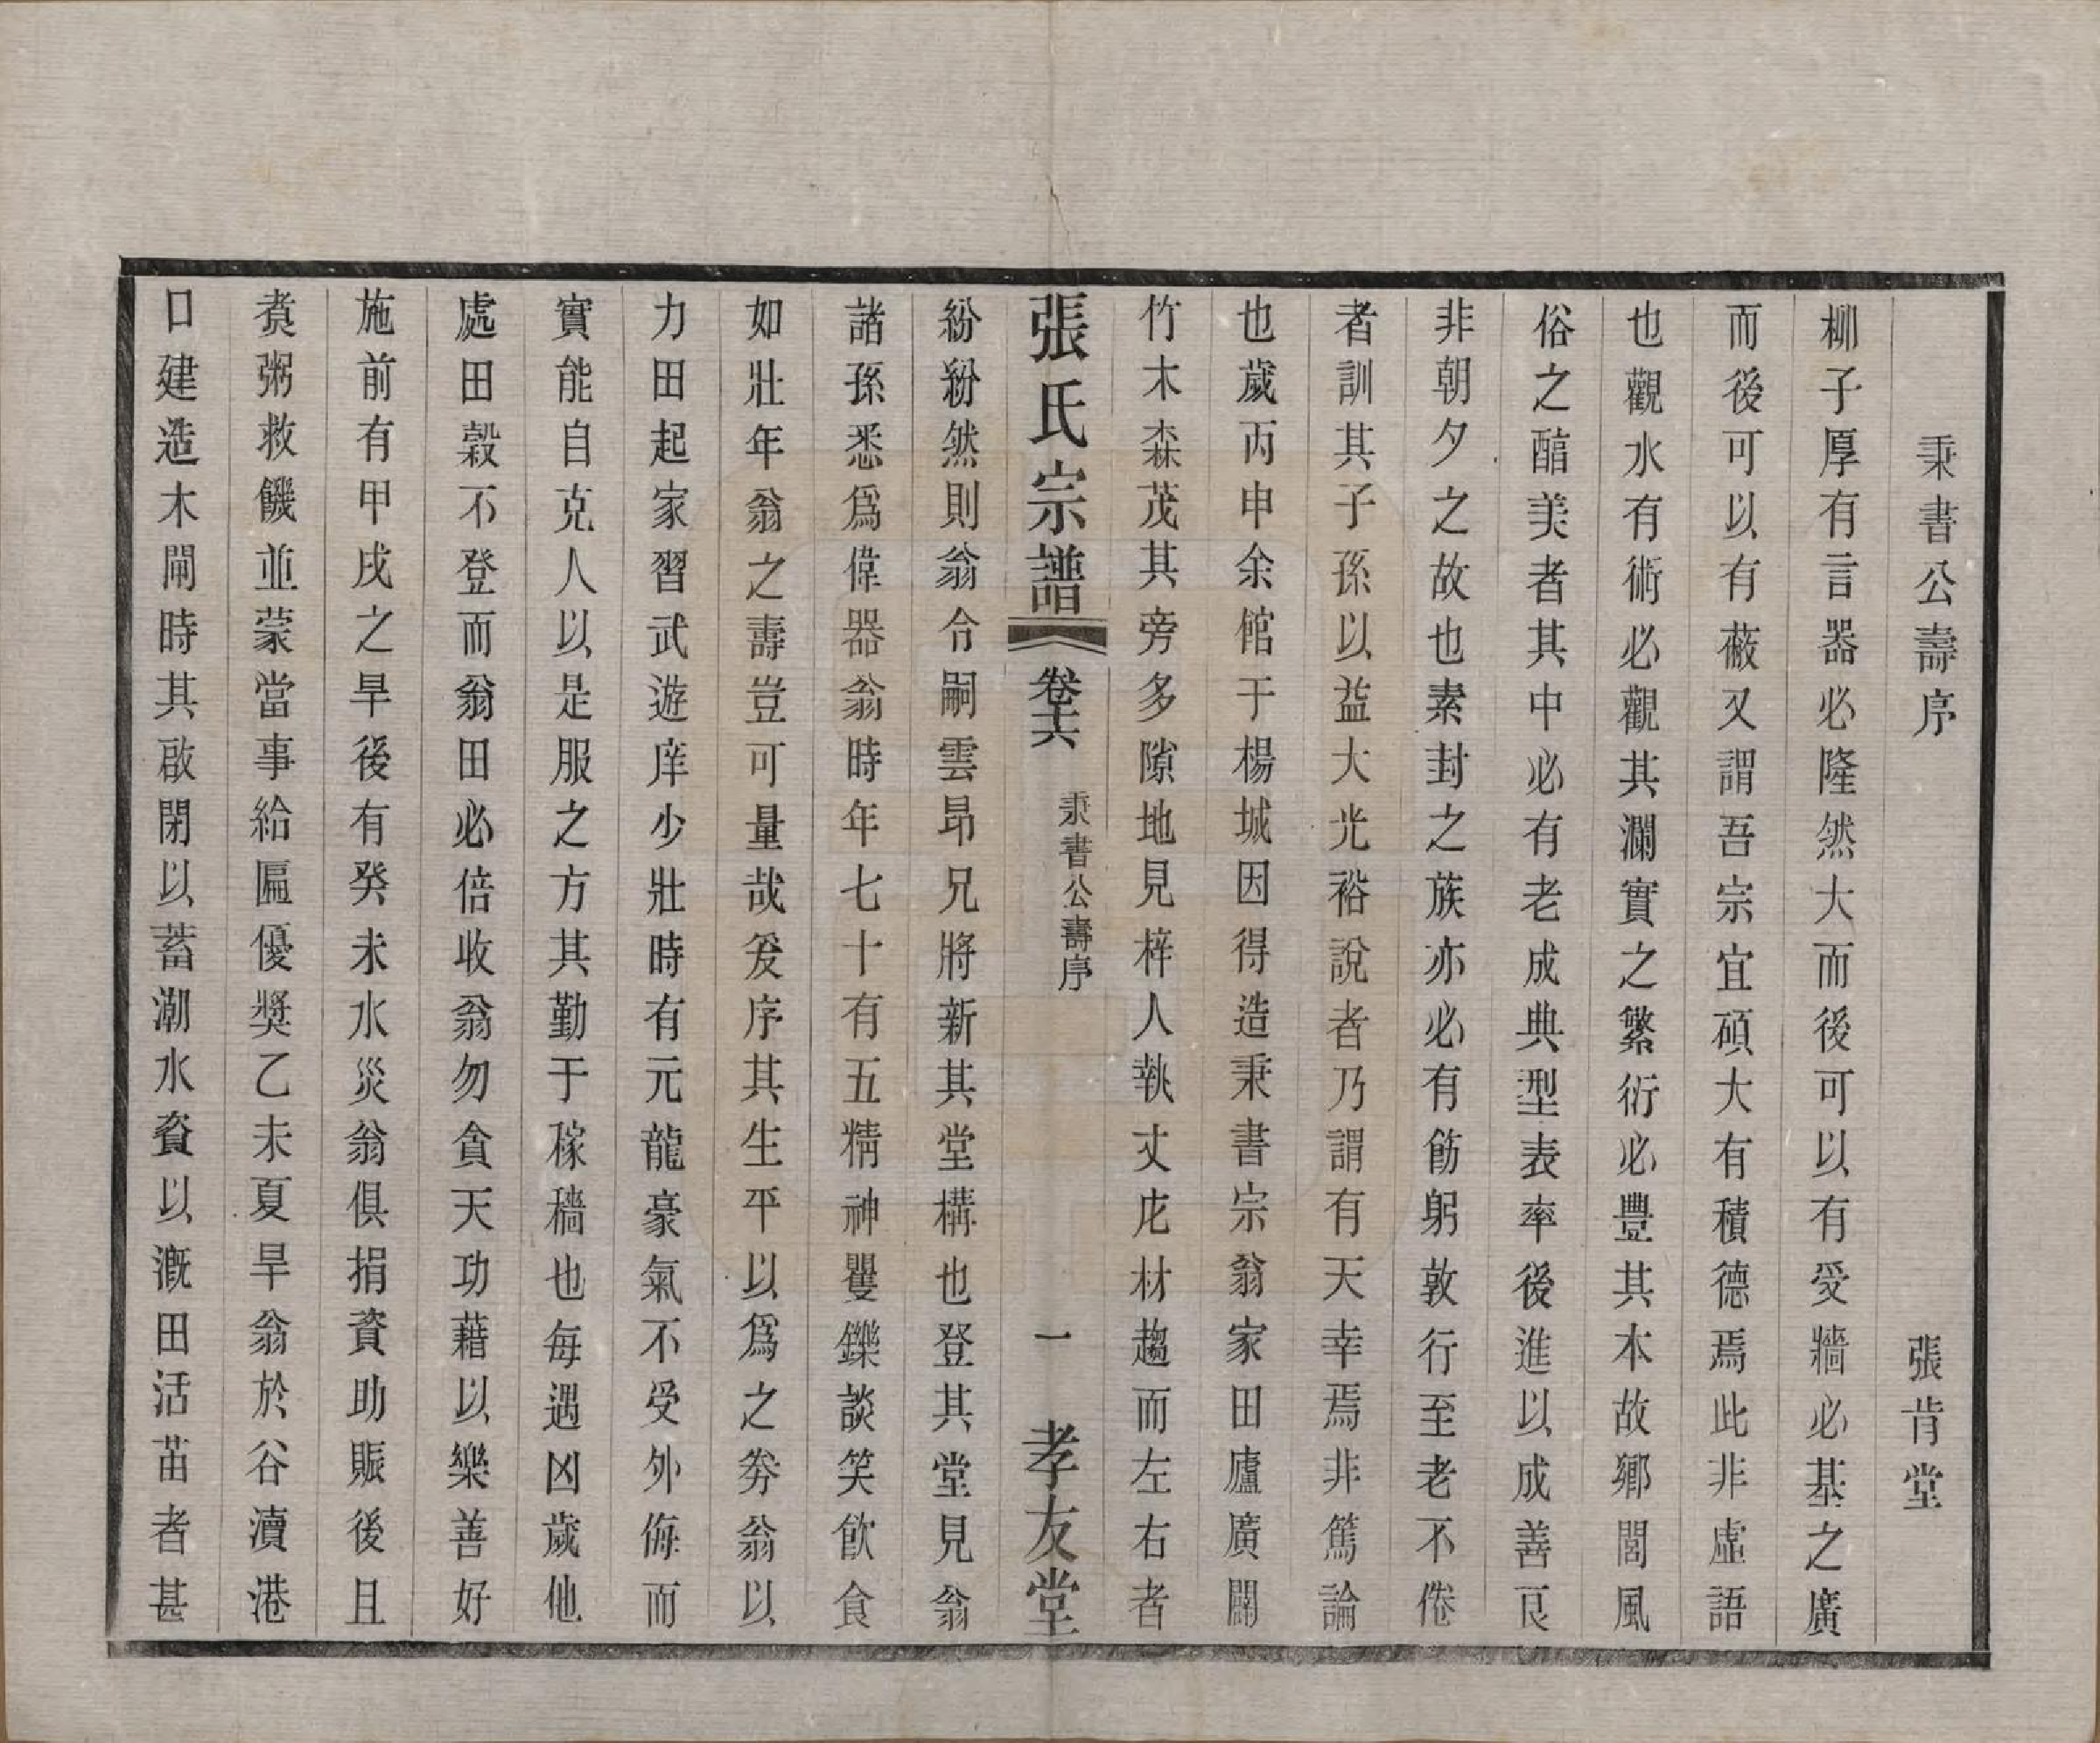 秉書公壽序　張肯堂
柳子厚有言器必隆然大而後可以有受牆必基之廣
而後可以有蔽又謂吾宗宜碩大有積德焉此非虛語
也觀水有術必觀其瀾實之繁衍必豐其本故鄉閭風
俗之醕美者其中必有老成典型表率後進以成善良
非朝夕之故也素封之族亦必有飭躬敦行至老不倦
者訓其子孫以益大光裕說者乃謂有天幸焉非篤論
也歲丙申余館于楊城因得造秉書宗翁家田廬廣闢
竹木森茂其旁多隙地見梓人執丈庀材趨而左右者
張氏宗譜　卷十六　秉書公壽序　一　孝友堂
紛紛然則翁令嗣雲昂兄將新其堂構也登其堂見翁
諸孫悉為偉器翁時年七十有五精神矍鑠談笑飲食
如壯年翁之壽豈可量哉爰序其生平以為之券翁以
力田起家習武遊庠少壯時有元龍豪氣不受外侮而
實能自克人以是服之方其勤于稼穡也每遇凶歲他
處田穀不登而翁田必倍收翁勿貪天功藉以樂善好
施前有甲戌之旱後有癸未水災翁俱捐資助賑後且
煑粥救饑並蒙當事給匾優獎乙未夏旱翁於谷瀆港
口建造木閘時其啟閉以蓄潮水資以溉田活苗者甚